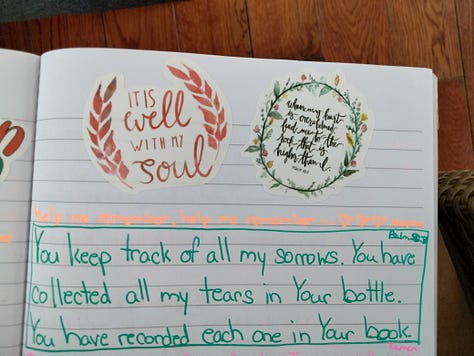 IT IS
well
WITH MY
Soul
when my heart
is overwhelmed
lead me to the
rock that is
higher than I.
help me remember, help me remember
Psalm 56:8
You keep track of all my sorrows. You have
collected all my tears in Your bottle.
You have recorded each one in Your book.